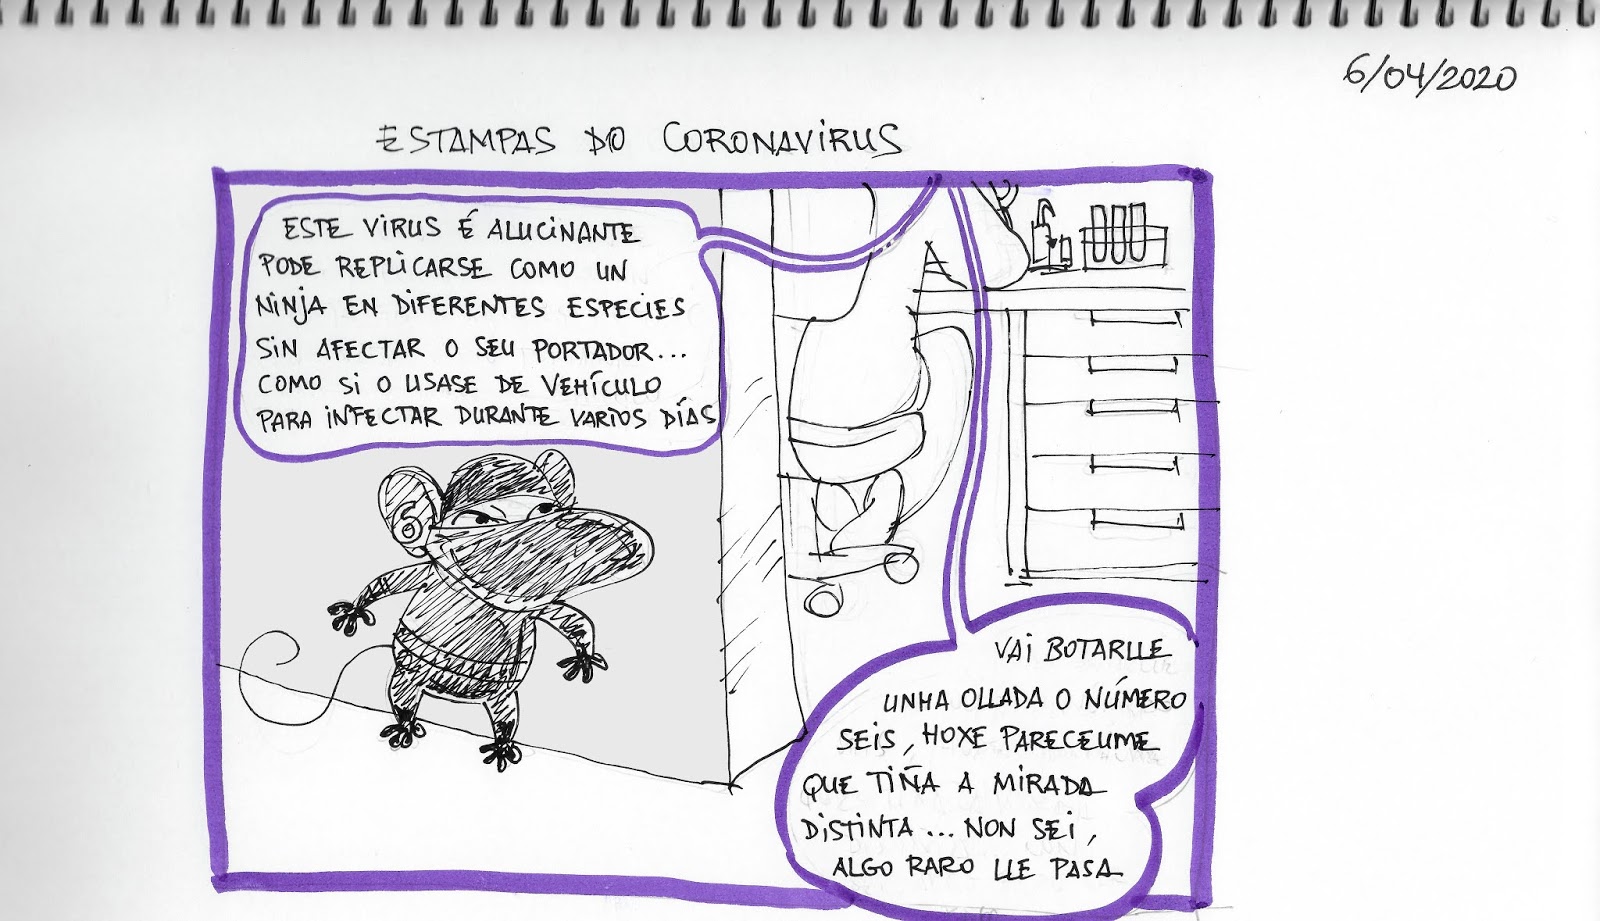 6/04/2020
ESTAMPAS DO CORONAVIRUS
ESTE VIRUS É ALUCINANTE
PODE REPLICARSE COMO UN
NINJA EN DIFERENTES ESPECIES
SIN AFECTAR O SEU PORTADOR...
COMO SI O USASE DE VEHÍCULO
PARA INFECTAR DURANTE VARIOS DÍAS
6
VAI BOTARLLE
UNHA OLLADA O NÚMERO
SEIS, HOXE PARECEUME
QUE TIÑA A MIRADA
DISTINTA... NON SEI,
ALGO RARO LLE PASA